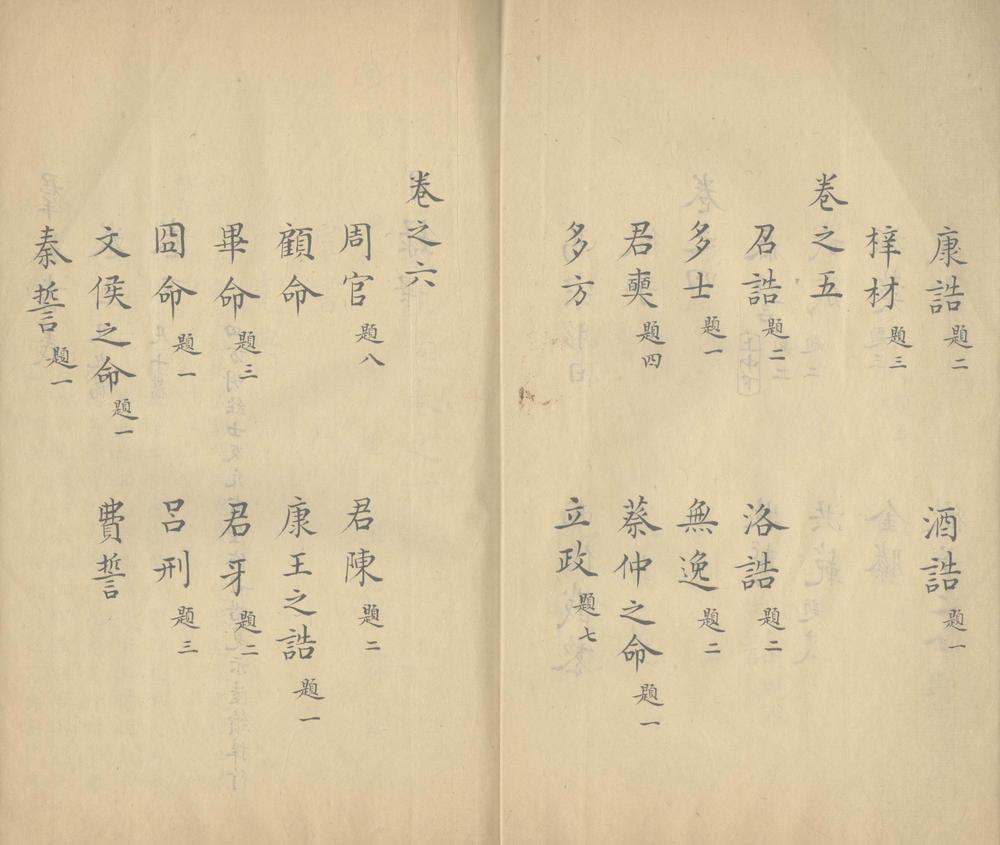 康誥題二　酒誥題一
梓材題三
卷之五
召誥題二　洛誥題二
多士題一　無逸題二
君奭題四　蔡仲之命題一
多方　立政題七
卷之六
周官題八　君陳題二
顧命　康王之誥題一
畢命題三　君牙題二
冏命題一　呂刑題三
文侯之命題一　費誓
秦誓題一